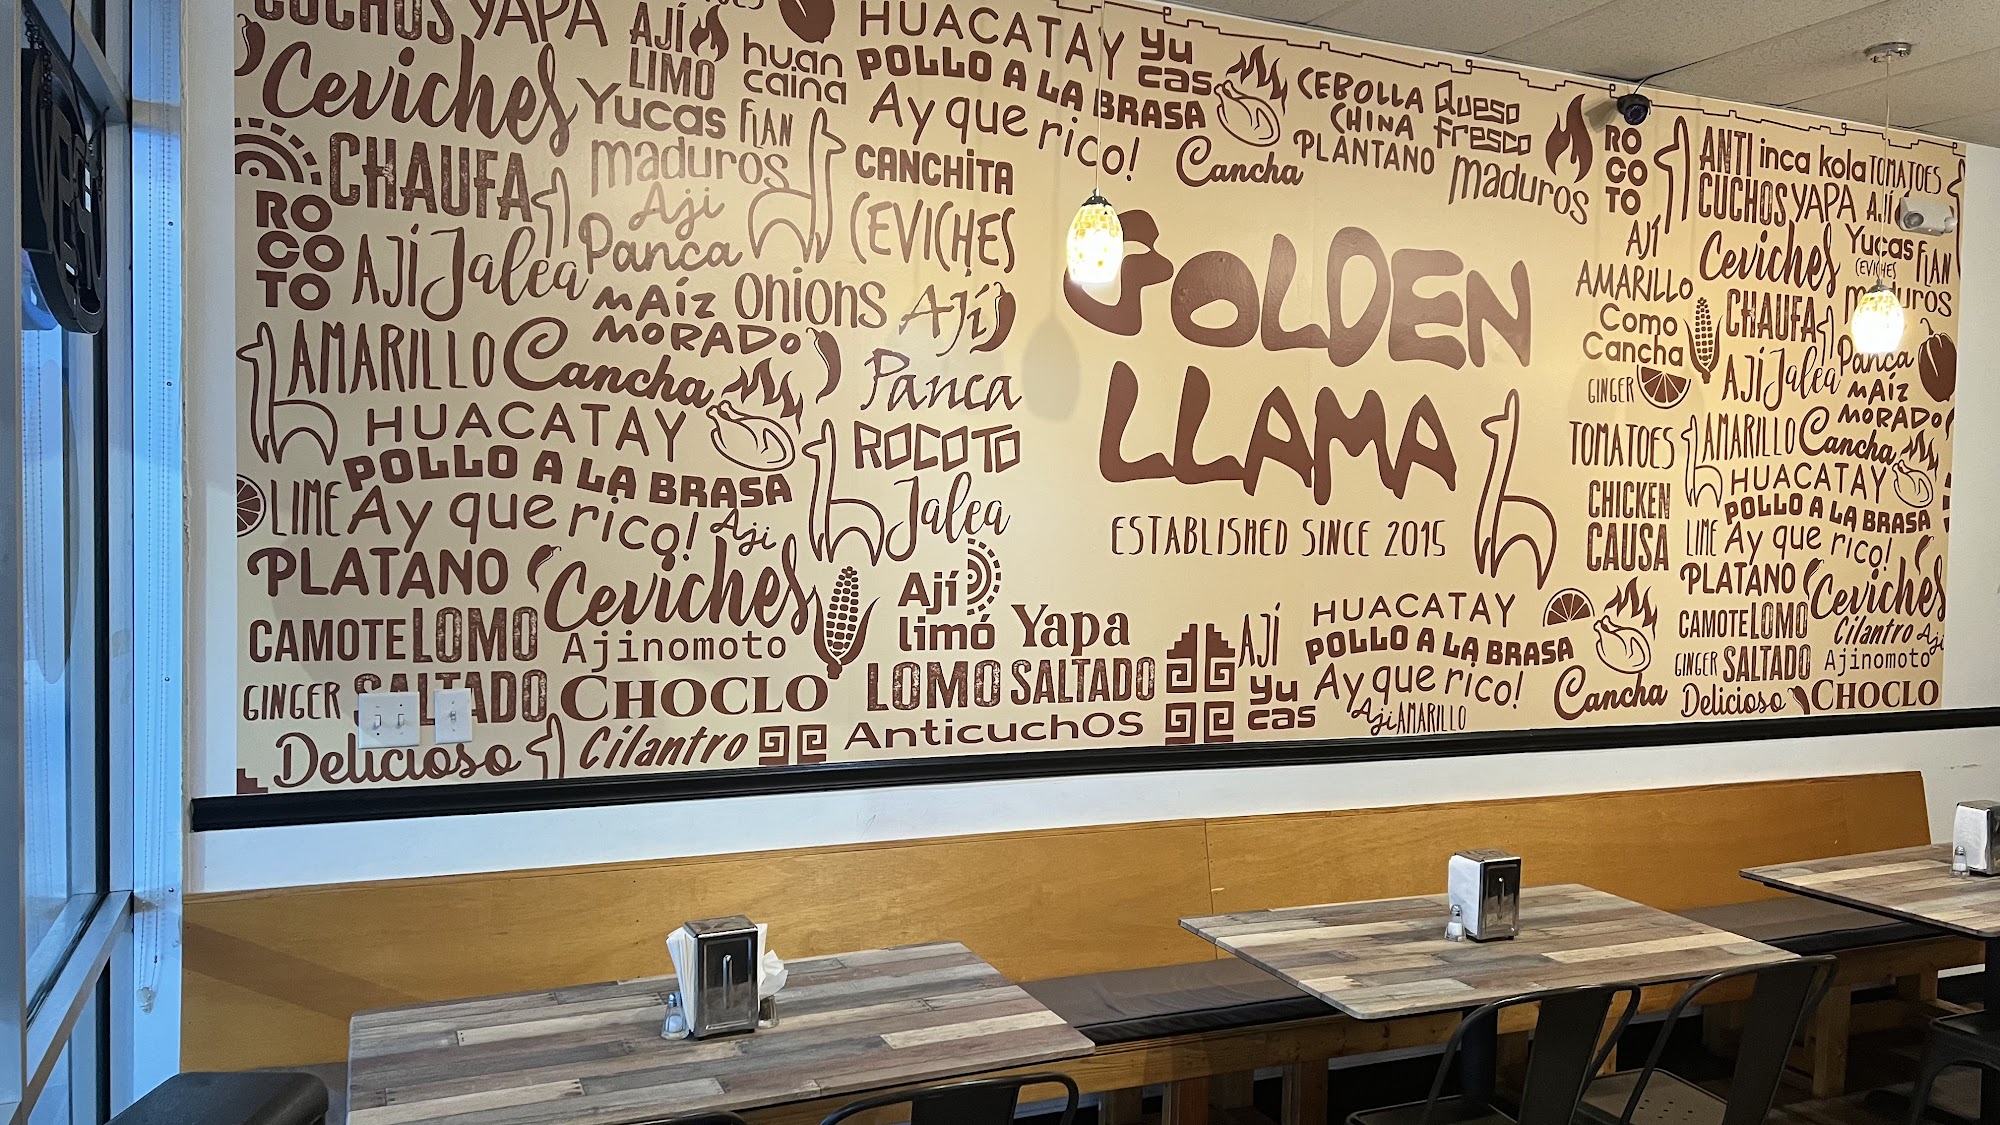 CUCHOS YAPA
Ceviches
AJÍ
LIMO
huan
caina
HUACATAY
POLLO A LA BRASA
Ay que rico!
yu
cas
CEBOLLA
CHINA
PLÁNTANO
Queso
fresco
Yucas
FLAN
maduros
CANCHITA
Cancha
maduros
RO
CO
TO
ANTI
CUCHOS
inca kola
TOMATOES
YAPA
AJÍ
CHAUFA
Aji
Panca
CEVICHES
RO
CO
TO
AJÍ
Jalea
MAÍZ
MORADO
Onions
Ají
Panca
GOLDEN
LLAMA
ESTABLISHED SINCE 2015
AJÍ
AMARILLO
Como
Cancha
GINGER
Ceviches
Yucas
FLAN
CEVICHES
maduros
CHAUFA
AJÍ
Jalea
Panca
MAÍZ
MORADO
AMARILLO
Cancha
HUACATAY
POLLO A LA BRASA
ROCOTO
Jalea
TOMATOES
CHICKEN
CAUSA
AMARILLO
Cancha
HUACATAY
POLLO A LA BRASA
LIME
Ay que rico!
Aji
LIME
Ay que rico!
PLATANO
Ceviches
PLATANO
Ceviches
CAMOTE
LOMO
Ajinomoto
Ají
limó
Yapa
AJÍ
HUACATAY
POLLO A LA BRASA
CAMOTE
LOMO
Cilantro
Aji
GINGER
SALTADO
CHOCLO
LOMO SALTADO
yu
cas
Ay que rico!
Aji
AMARILLO
Cancha
GINGER
SALTADO
Ajinomoto
Delicioso
Cilantro
Anticuchos
Delicioso
CHOCLO